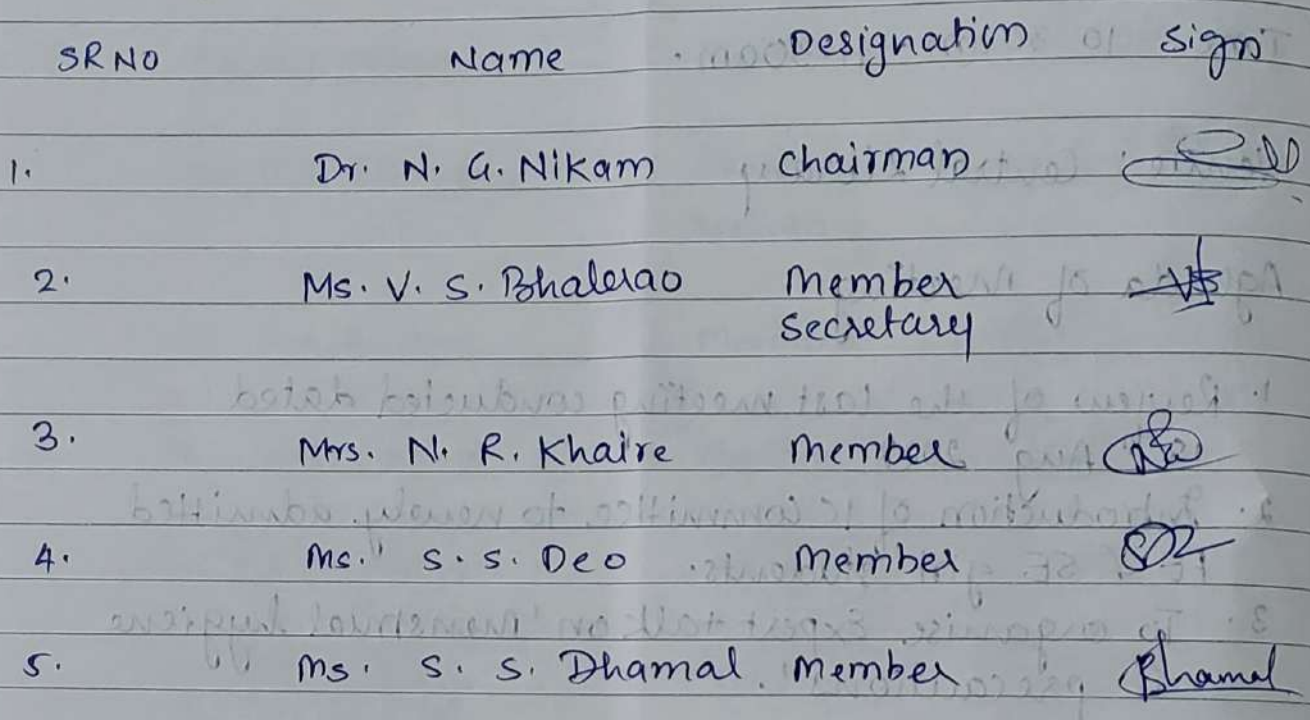 SR NO Name Designation Sign
1. Dr. N. G. Nikam Chairman
2. Ms. V. S. Bhalerao Member
Secretary
3. Mrs. N. R. Khaire Member
4. Ms. S. S. Deo Member
5. Ms. S. S. Dhamal Member Dhamal